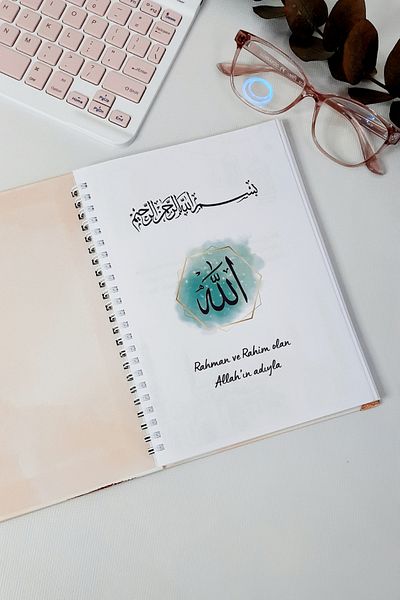 بسم الله الرحمن الرحيم
الله
Rahman ve Rahim olan
Allah'ın adıyla